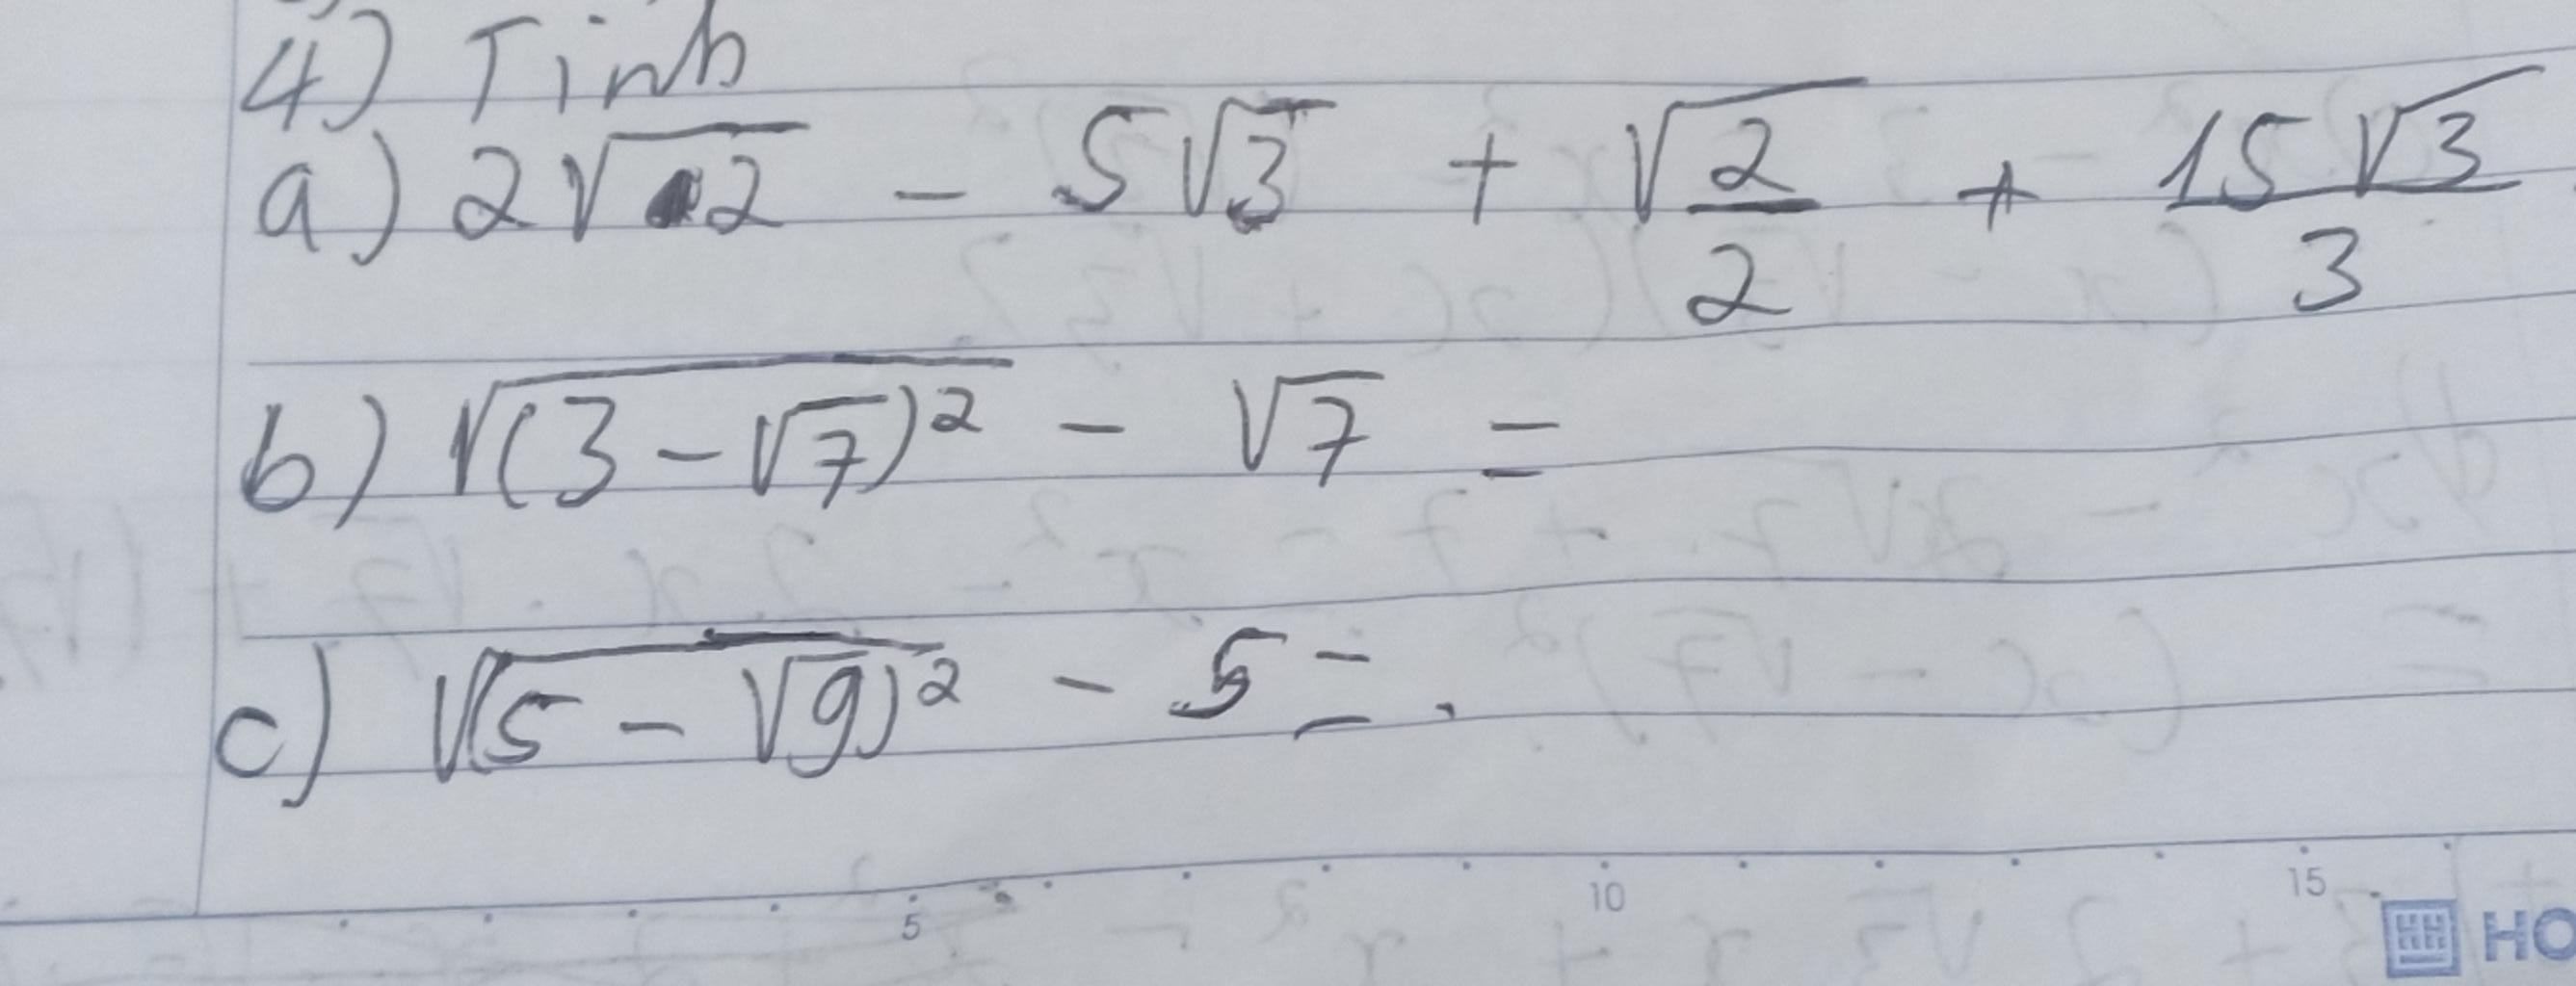 4) Tinh
a) 2√2 - 5√3 + √2/2 + 15√3/3
b) √(3-√7)² - √7 =
c) √(5-√9)² - 5 = .
5 10 15
HO